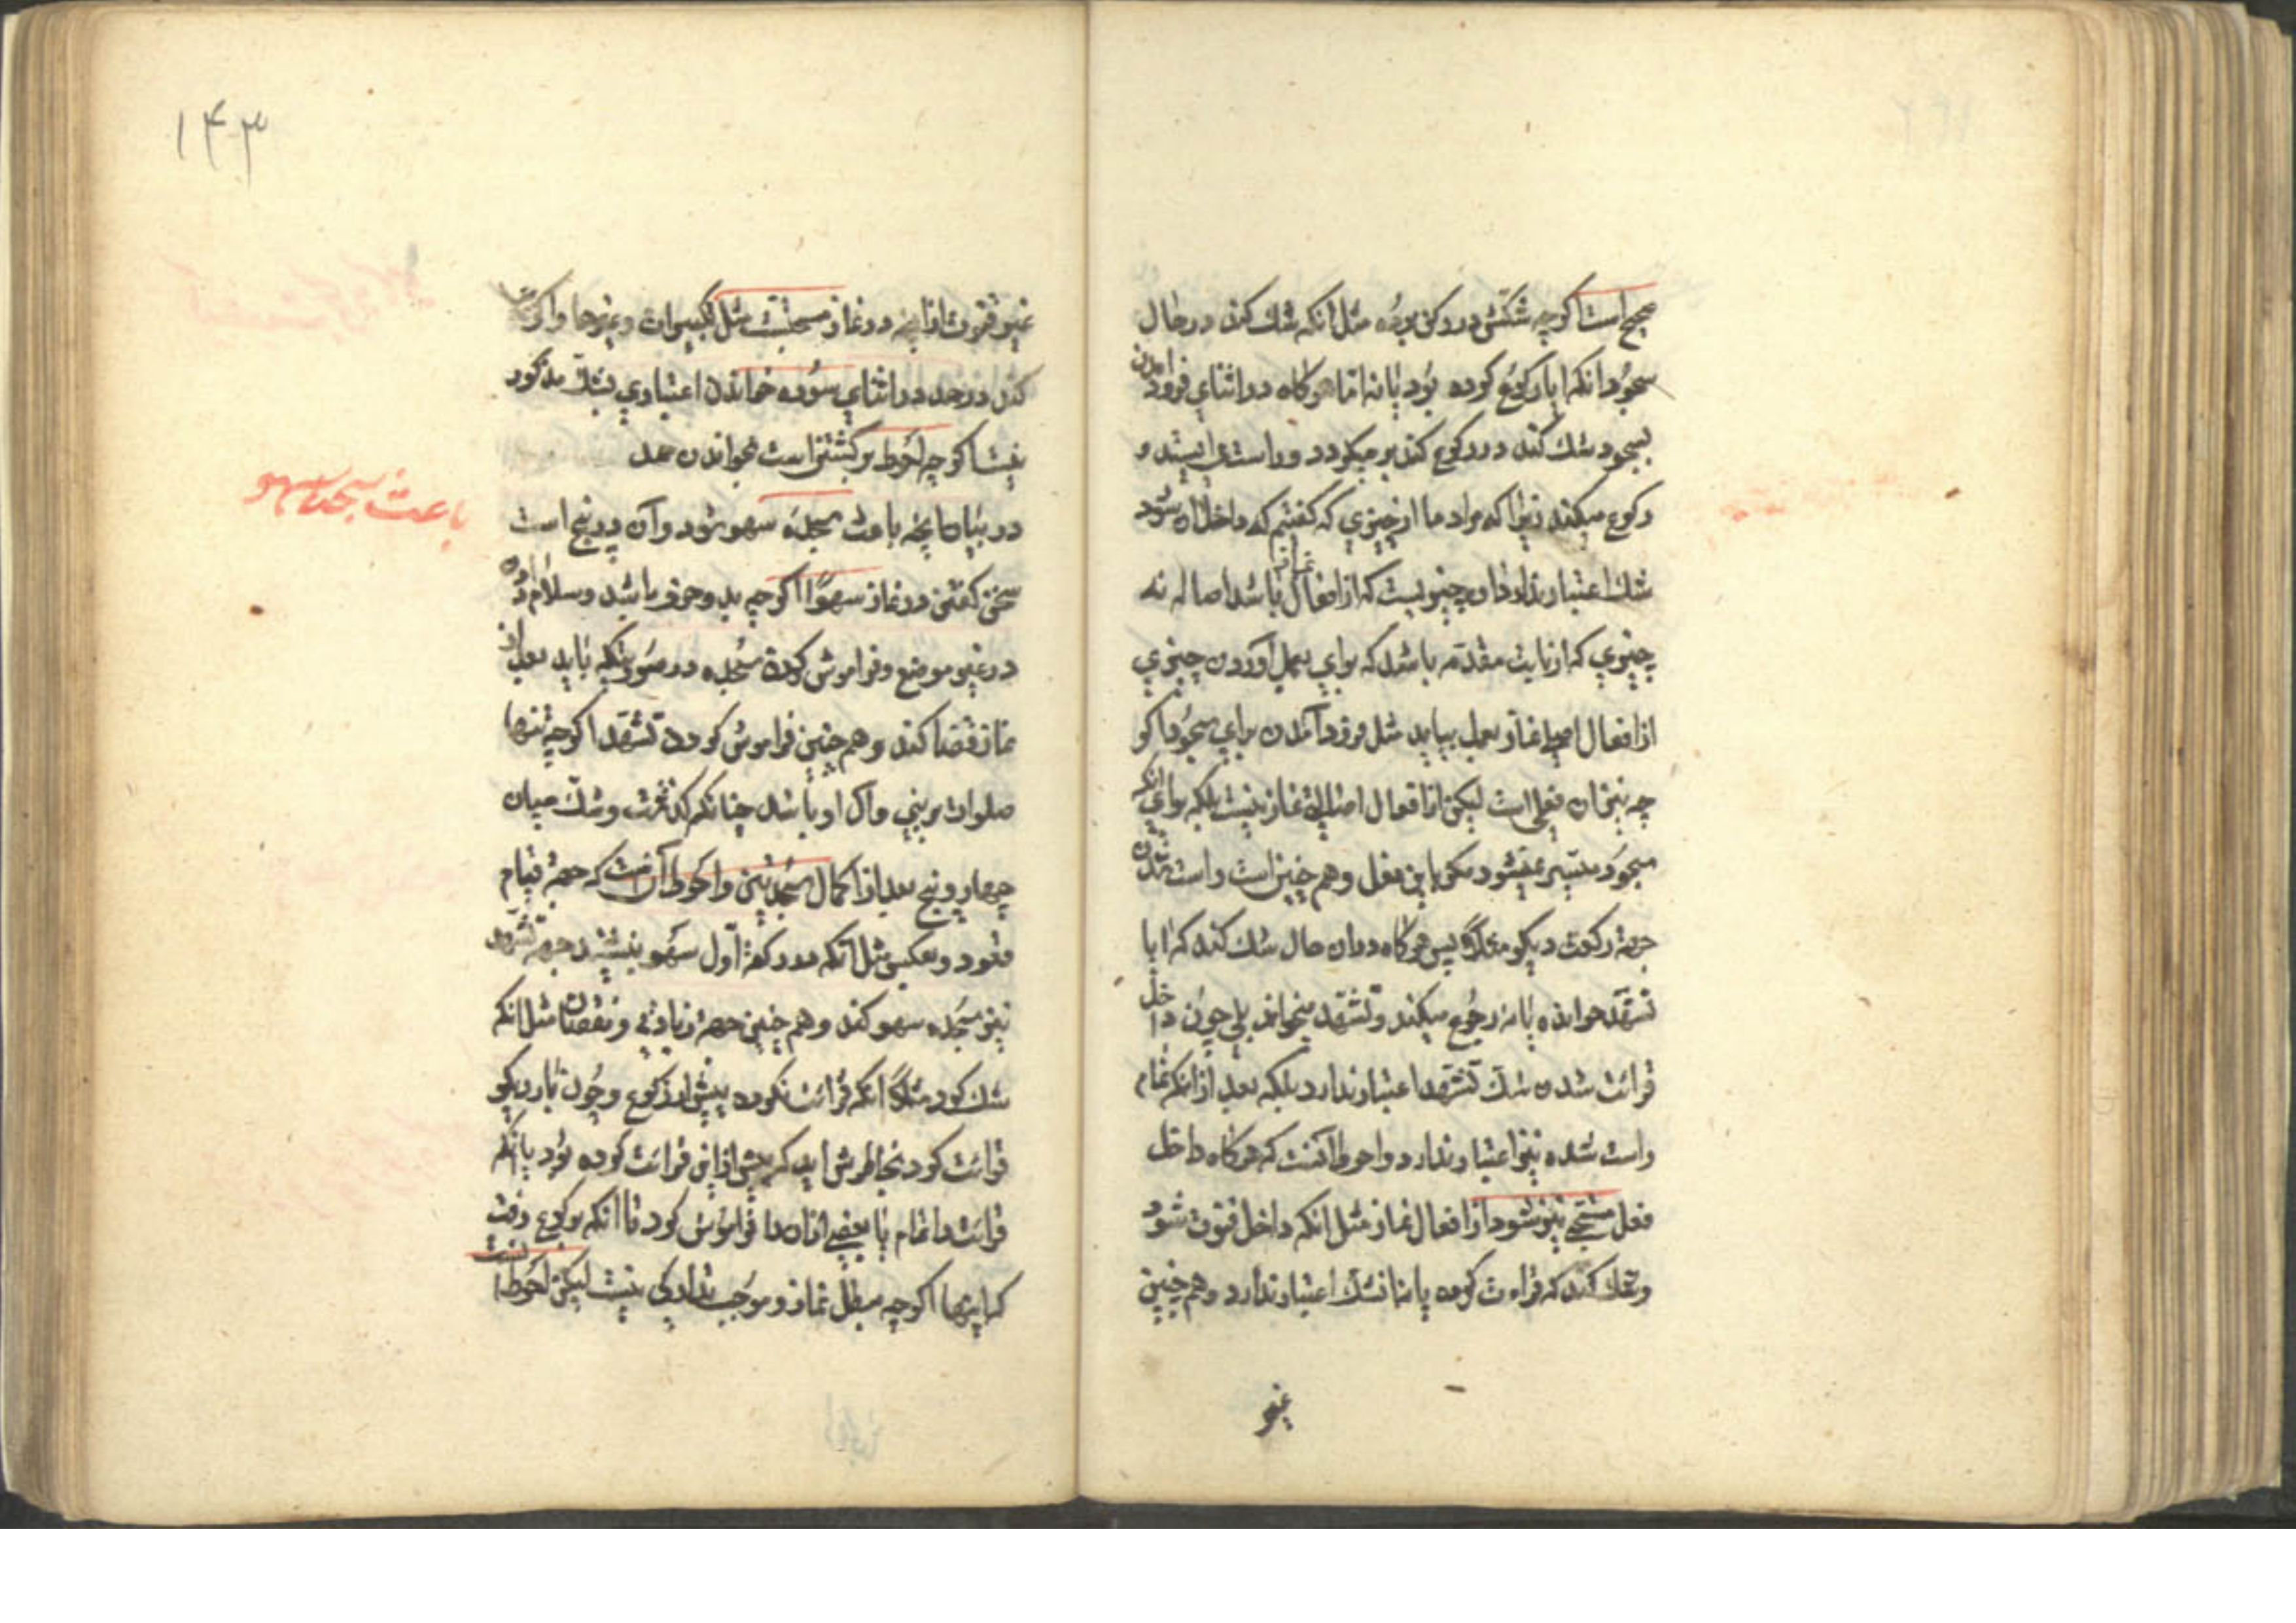 صحیح است اگرچه شکش در رکن بوده مثل آنکه شك کند در حال
سجود آنکه ایا رکوع کرده بود یا نه اما هرگاه در اثنای فرود آمدن
بسجود شك کند در رکوع کند برمیگردد و راست می ایستد و
رکوع میکند زیرا که مراد ما از چیزی که گفتیم که داخل آن شود
شك اعتبار ندارد چیزیست که از افعال نماز باشد اصالة نه
چیزی که از بابت مقدّمه باشد که برای بعمل آوردن چیزی
از افعال اصلی نماز بعمل بیاید مثل فرود آمدن برای سجود اگر
چه نیز آن فعلی است لیکن از افعال اصلیة نماز نیست بلکه برای آنکه
سجود میسّر نمیشود مگر باین فعل و هم چنین است راست شدن
جهة رکعت دیگر مثلاً پس هرگاه در آن حال شك کند که ایا
تشهّد خوانده یا نه رجوع میکند و تشهّد میخواند بلی چون داخل
قرائت شده شك تشهّد اعتبار ندارد بلکه بعد از آنکه تمام
راست شده نیز اعتبار ندارد و احوط آنست که هرگاه داخل
فعل مستحبّی نیز شود از افعال نماز مثل آنکه داخل قنوت شود
و شك کند که قراءت کرده یا نه آن شك اعتبار ندارد و هم چنین
غیر
۱۴۳
غیر قنوت از آنچه در نماز مستحبّست مثل تکبیرات و غیرها و اگر شك
کند در حمد در اثنای سوره خواندن اعتباری بشك مذکور
نیست اگرچه احوط برگشتن است بخواندن حمد
باعث سجده سهو
در بیان آنچه باعث سجده سهو شود و آن در پنج است
سخن گفتن در نماز سهواً اگرچه بدو حرف باشد و سلام دادن
در غیر موضع و فراموش کردن سجده در صورتیکه باید بعد از
نماز قضا کند و هم چنین فراموش کردن تشهّد اگرچه تنها
صلوات بر نبی و آل او باشد چنانکه گذشت و شك میان
چهار و پنج بعد از اکمال سجدتین و احوط آنست که جهة قیام
قعود و بعکس مثل آنکه در رکعة اوّل سهو بنشیند جهة تشهّد
نیز سجده سهو کند و هم چنین جهة زیادتی و نقصان مثل آنکه
شك کرد مثلاً آنکه قرائت نکرده پیش از رکوع و چون بار دیگر
قرائت کرد بخاطرش آمد که پیش از این قرائت کرده بود یا آنکه
قرائت را تمام یا بعضی از آن را فراموش کرد تا آنکه برکوع رفت
که اینها اگرچه مبطل نماز و موجب تدارکی نیست لیکن احوط آنست